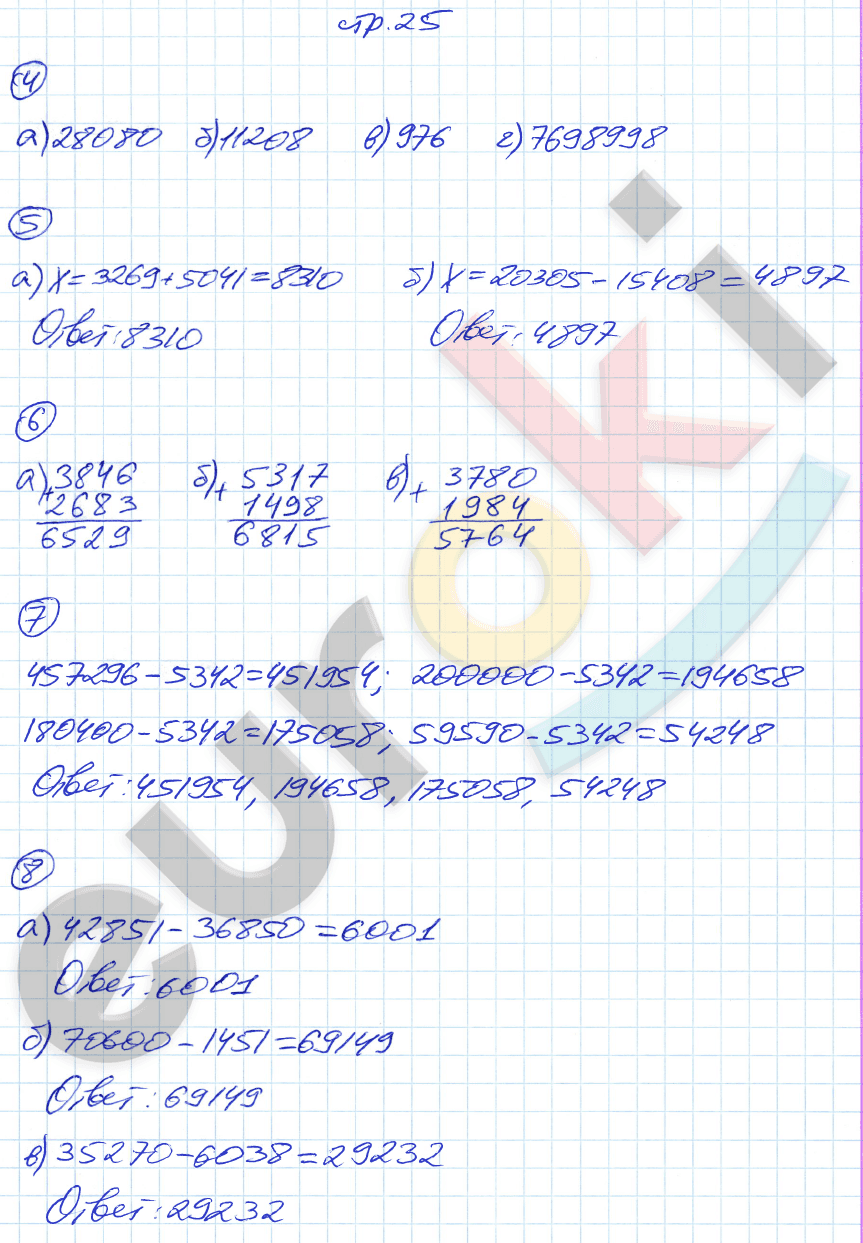 стр. 25
4
а) 28080 б) 11208 в) 976 г) 7698998
5
а) x = 3269 + 5041 = 8310 б) x = 20305 - 15408 = 4897
Ответ: 8310 Ответ: 4897
6
а) + 3846 б) + 5317 в) + 3780
2683 1498 1984
6529 6815 5764
7
457296 - 5342 = 451954; 200000 - 5342 = 194658
180400 - 5342 = 175058; 59590 - 5342 = 54248
Ответ: 451954, 194658, 175058, 54248
8
а) 42851 - 36850 = 6001
Ответ: 6001
б) 70600 - 1451 = 69149
Ответ: 69149
в) 35270 - 6038 = 29232
Ответ: 29232
euroki